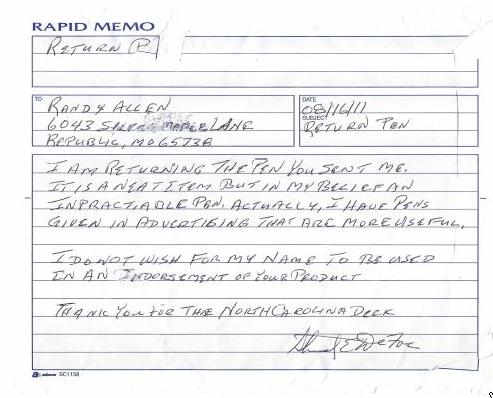 RAPID MEMO
RETURN P
TO
RANDY ALLEN
6043 SILVER MAPLE LANE
REPUBLIC, MO 65738
DATE
08/16/11
SUBJECT
RETURN PEN
I AM RETURNING THE PEN YOU SENT ME.
IT IS A NEAT ITEM BUT IN MY BELIEF AN
INPRACTIABLE PEN. ACTUALLY, I HAVE PENS
GIVEN IN ADVERTISING THAT ARE MORE USEFUL.
I DO NOT WISH FOR MY NAME TO BE USED
IN AN INDORSEMENT OF YOUR PRODUCT
THANK YOU FOR THE NORTH CAROLINA DECK
SC1158